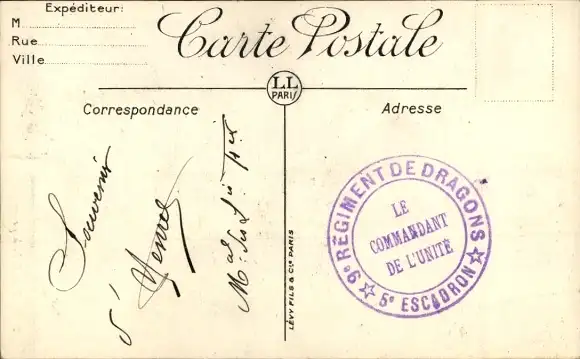 Expéditeur:
M
Rue
Ville
Carte Postale
LL
PARIS
Correspondance
Adresse
Souvenir
d'
LÉVY FILS & Cie PARIS
6e RÉGIMENT DE DRAGONS
LE
COMMANDANT
DE L'UNITÉ
5e ESCADRON